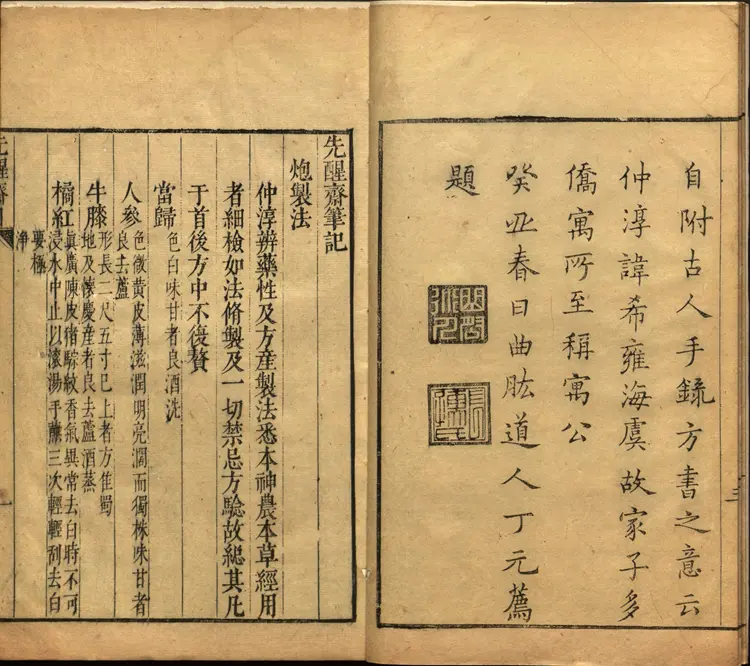 自附古人手錄方書之意云
仲淳諱希雍海虞故家子多
僑寓所至稱寓公
癸丑春日曲肱道人丁元薦
題
三
先醒齋筆記
炮製法
仲淳辨藥性及方產製法悉本神農本草經用
者細檢如法脩製及一切禁忌方驗故總其凡
于首後方中不復贅
當歸 色白味甘者良酒洗
人參 色微黃皮薄滋潤明亮濶而獨株味甘者
良去蘆
牛膝 形長二尺五寸已上者方佳蜀
地及懷慶産者良去蘆酒蒸
橘紅 真廣陳皮猪鬃紋香氣異常去白時不可
浸水中止以滾湯手蘸三次輕輕刮去白
要極
淨
先醒齋
一